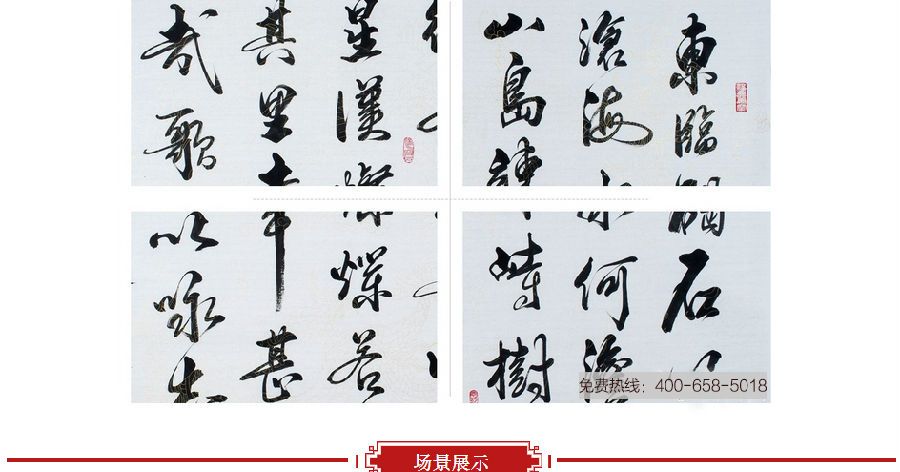 東臨
滄海
山島
星漢
其里
哉歌
石
何澹
峙樹
爛若
甚
以詠志
免费热线：400-658-5018
场景展示